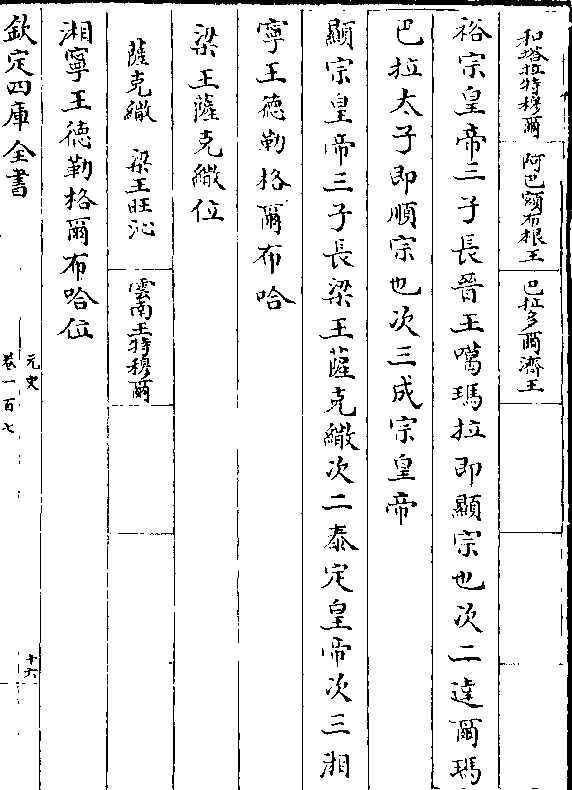 和塔拉特穆爾 阿巴額布根王 巴拉多爾濟王
裕宗皇帝三子長晉王噶瑪拉即顯宗也次二達爾瑪
巴拉太子即順宗也次三成宗皇帝
顯宗皇帝三子長梁王薩克繖次二泰定皇帝次三湘
寧王德勒格爾布哈
梁王薩克繖位
薩克繖 梁王旺沁 雲南王特穆爾
湘寧王德勒格爾布哈位
欽定四庫全書 元史 卷一百七 十六